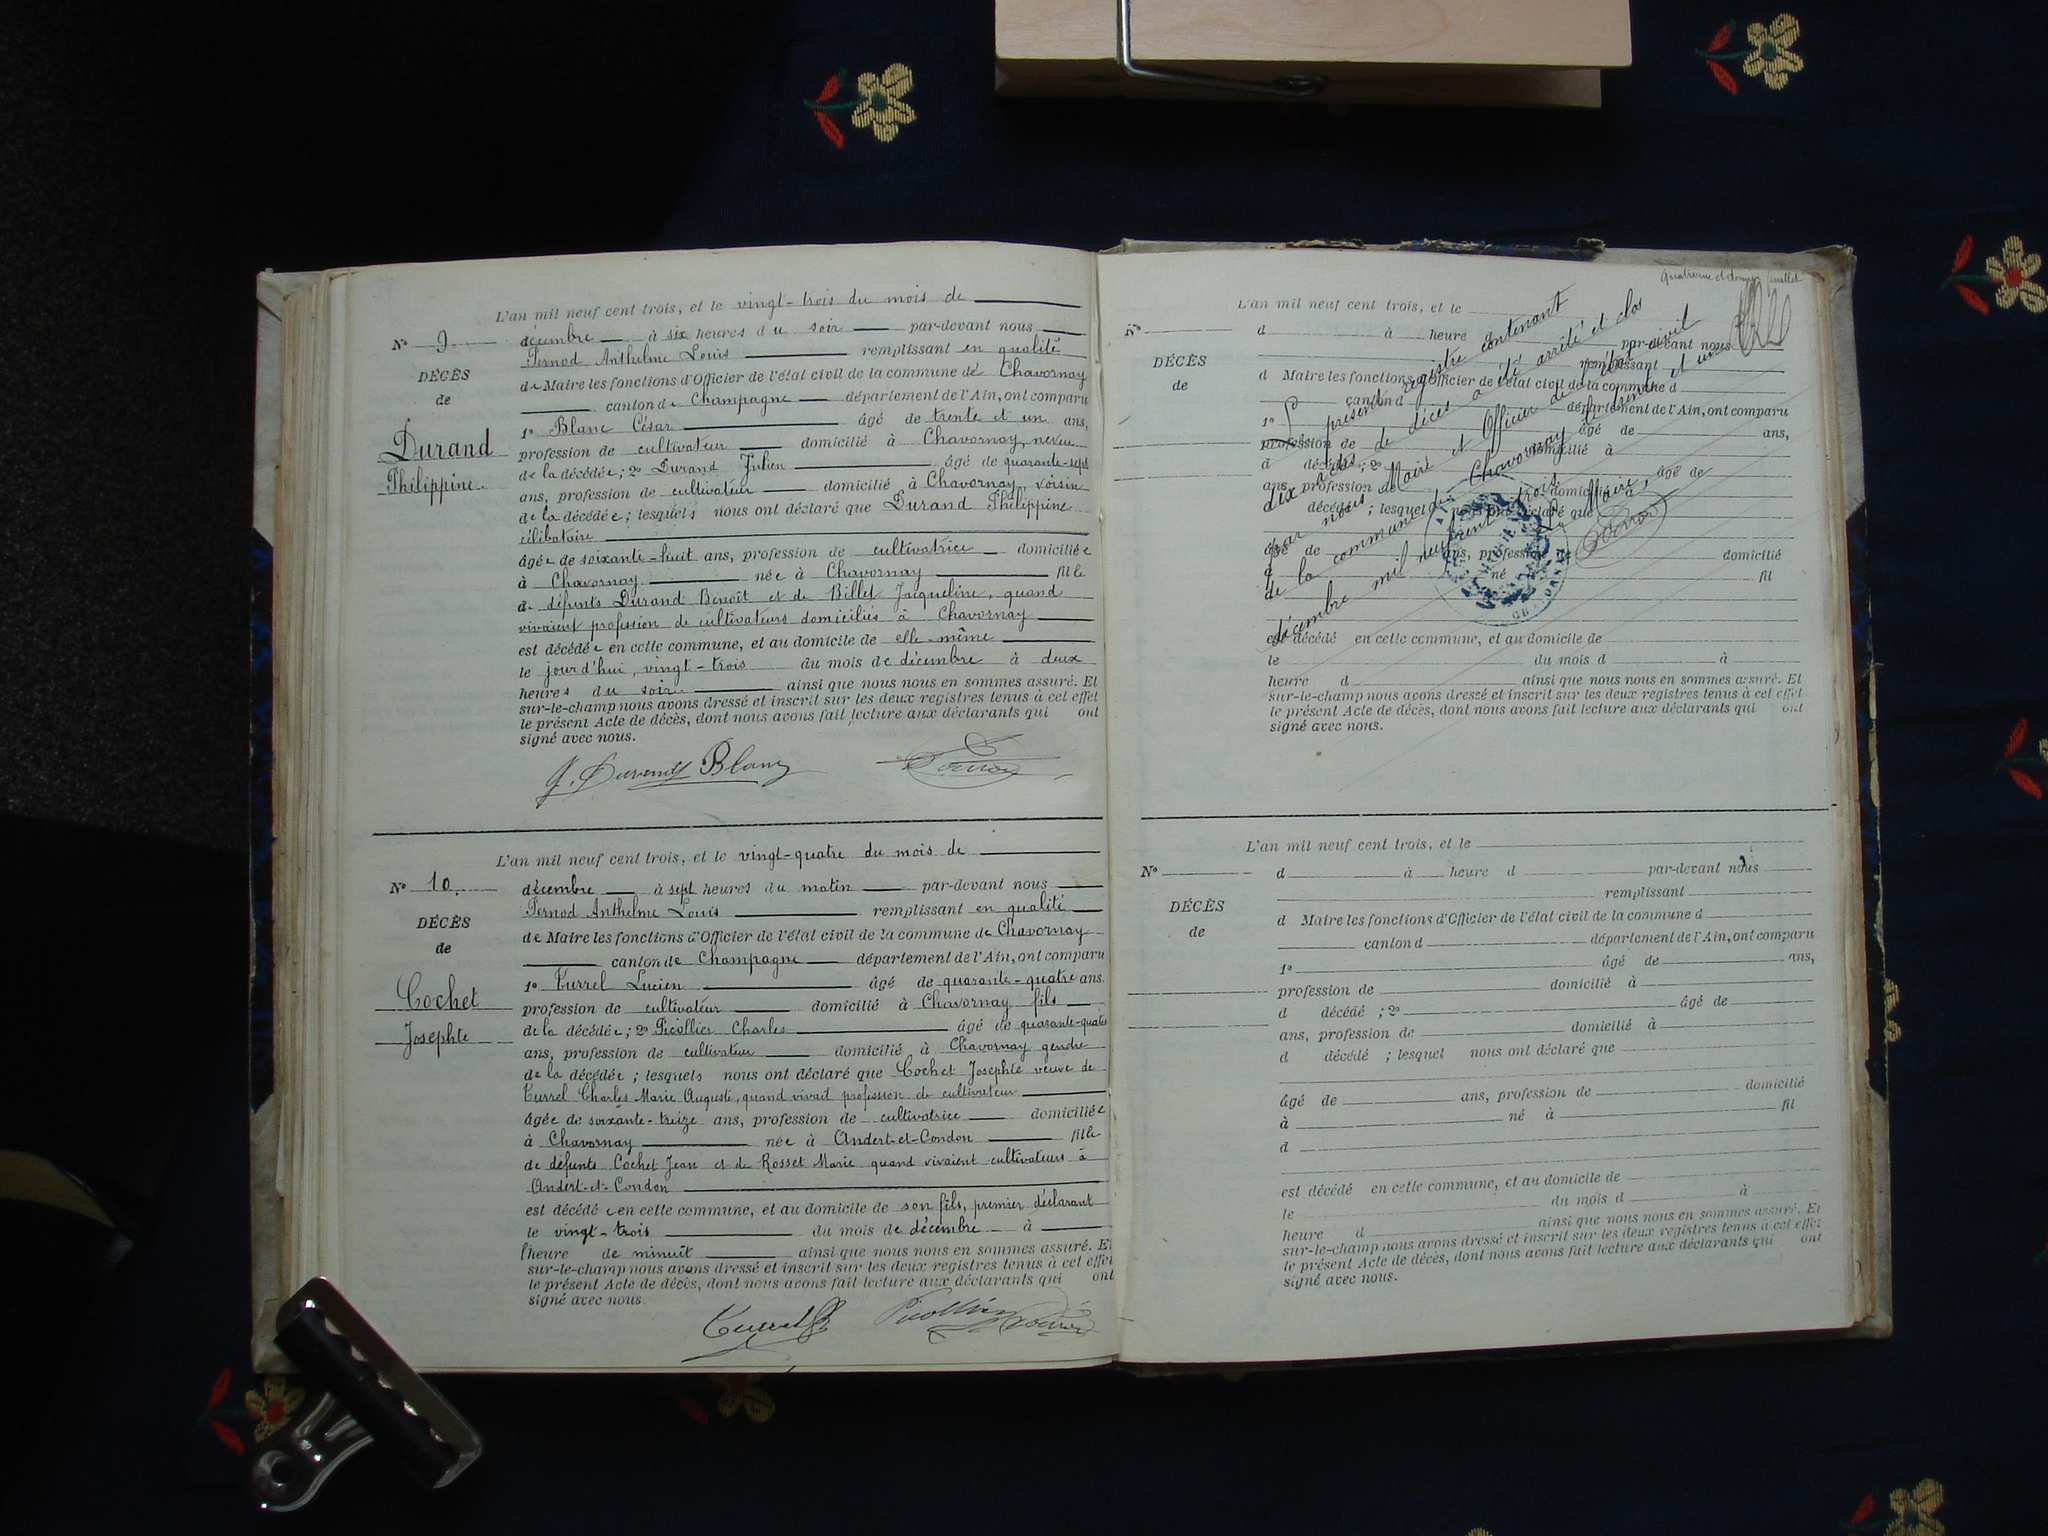 L'an mil neuf cent trois, et le vingt-trois du mois de
N° 9 décembre à six heures du soir par-devant nous
Pernod Anthelme Louis remplissant en qualité
DÉCÈS
de Maire les fonctions d'Officier de l'état civil de la commune de Chavornay
de
canton de Champagne département de l'Ain, ont comparu
1° Blanc César âgé de trente et un ans,
Durand
profession de cultivateur domicilié à Chavornay, neveu
de la décédée ; 2° Durand Julien âgé de quarante-sept
Philippine
ans, profession de cultivateur domicilié à Chavornay, voisin
de la décédée ; lesquels nous ont déclaré que Durand Philippine
célibataire
âgée de soixante-huit ans, profession de cultivatrice domiciliée
à Chavornay née à Chavornay fille
de défunts Durand Benoît et de Billet Jacqueline, quand
vivaient profession de cultivateurs domiciliés à Chavornay
est décédée en cette commune, et au domicile de elle-même
le jourd'hui, vingt-trois du mois de décembre à deux
heures du soir ainsi que nous nous en sommes assuré. Et
sur-le-champ nous avons dressé et inscrit sur les deux registres tenus à cet effet
le présent Acte de décès, dont nous avons fait lecture aux déclarants qui ont
signé avec nous.
J. Durand Blanc
L'an mil neuf cent trois, et le vingt-quatre du mois de
N° 10. décembre à sept heures du matin par-devant nous
Pernod Anthelme Louis remplissant en qualité
DÉCÈS
de Maire les fonctions d'Officier de l'état civil de la commune de Chavornay
de
canton de Champagne département de l'Ain, ont comparu
1° Turrel Lucien âgé de quarante-quatre ans.
Cochet
profession de cultivateur domicilié à Chavornay fils
de la décédée ; 2° Picollier Charles âgé de quarante-quatre
Josephte
ans, profession de cultivateur domicilié à Chavornay gendre
de la décédée ; lesquels nous ont déclaré que Cochet Josephte veuve de
Turrel Charles Marie Auguste, quand vivait profession de cultivateur
âgée de soixante-treize ans, profession de cultivatrice domiciliée
à Chavornay née à Andert-et-Condon fille
de défunts Cochet Jean et de Rosset Marie quand vivaient cultivateurs à
Andert-et-Condon
est décédée en cette commune, et au domicile de son fils, premier déclarant
le vingt-trois du mois de décembre à
l'heure de minuit ainsi que nous nous en sommes assuré. Et
sur-le-champ nous avons dressé et inscrit sur les deux registres tenus à cet effet
le présent Acte de décès, dont nous avons fait lecture aux déclarants qui ont
signé avec nous.
Turrel Picollier
Quatrième et dernier feuillet
L'an mil neuf cent trois, et le
N° d à heure par-devant nous
remplissant
DÉCÈS
d Maire les fonctions d'Officier de l'état civil de la commune d
de
canton d département de l'Ain, ont comparu
1° âgé de ans,
profession de domicilié à
d décédé ; 2° âgé de
ans, profession de domicilié à
d décédé ; lesquel nous ont déclaré que
âgé de ans, profession de domicilié
à né à fil
d
est décédé en cette commune, et au domicile de
le du mois d à
heure d ainsi que nous nous en sommes assuré. Et
sur-le-champ nous avons dressé et inscrit sur les deux registres tenus à cet effet
le présent Acte de décès, dont nous avons fait lecture aux déclarants qui ont
signé avec nous.
présent registre contenant
dix actes de décès a été arrêté et clos
par nous Maire et Officier de l'état civil
de la commune de Chavornay le trente et un
décembre mil neuf cent trois
Maire,
L'an mil neuf cent trois, et le
N° d à heure d par-devant nous
remplissant
DÉCÈS
d Maire les fonctions d'Officier de l'état civil de la commune d
de
canton d département de l'Ain, ont comparu
1° âgé de ans,
profession de domicilié à
d décédé ; 2° âgé de
ans, profession de domicilié à
d décédé ; lesquel nous ont déclaré que
âgé de ans, profession de domicilié
à né à fil
d
est décédé en cette commune, et au domicile de
le du mois d à
heure d ainsi que nous nous en sommes assuré. Et
sur-le-champ nous avons dressé et inscrit sur les deux registres tenus à cet effet
le présent Acte de décès, dont nous avons fait lecture aux déclarants qui ont
signé avec nous.